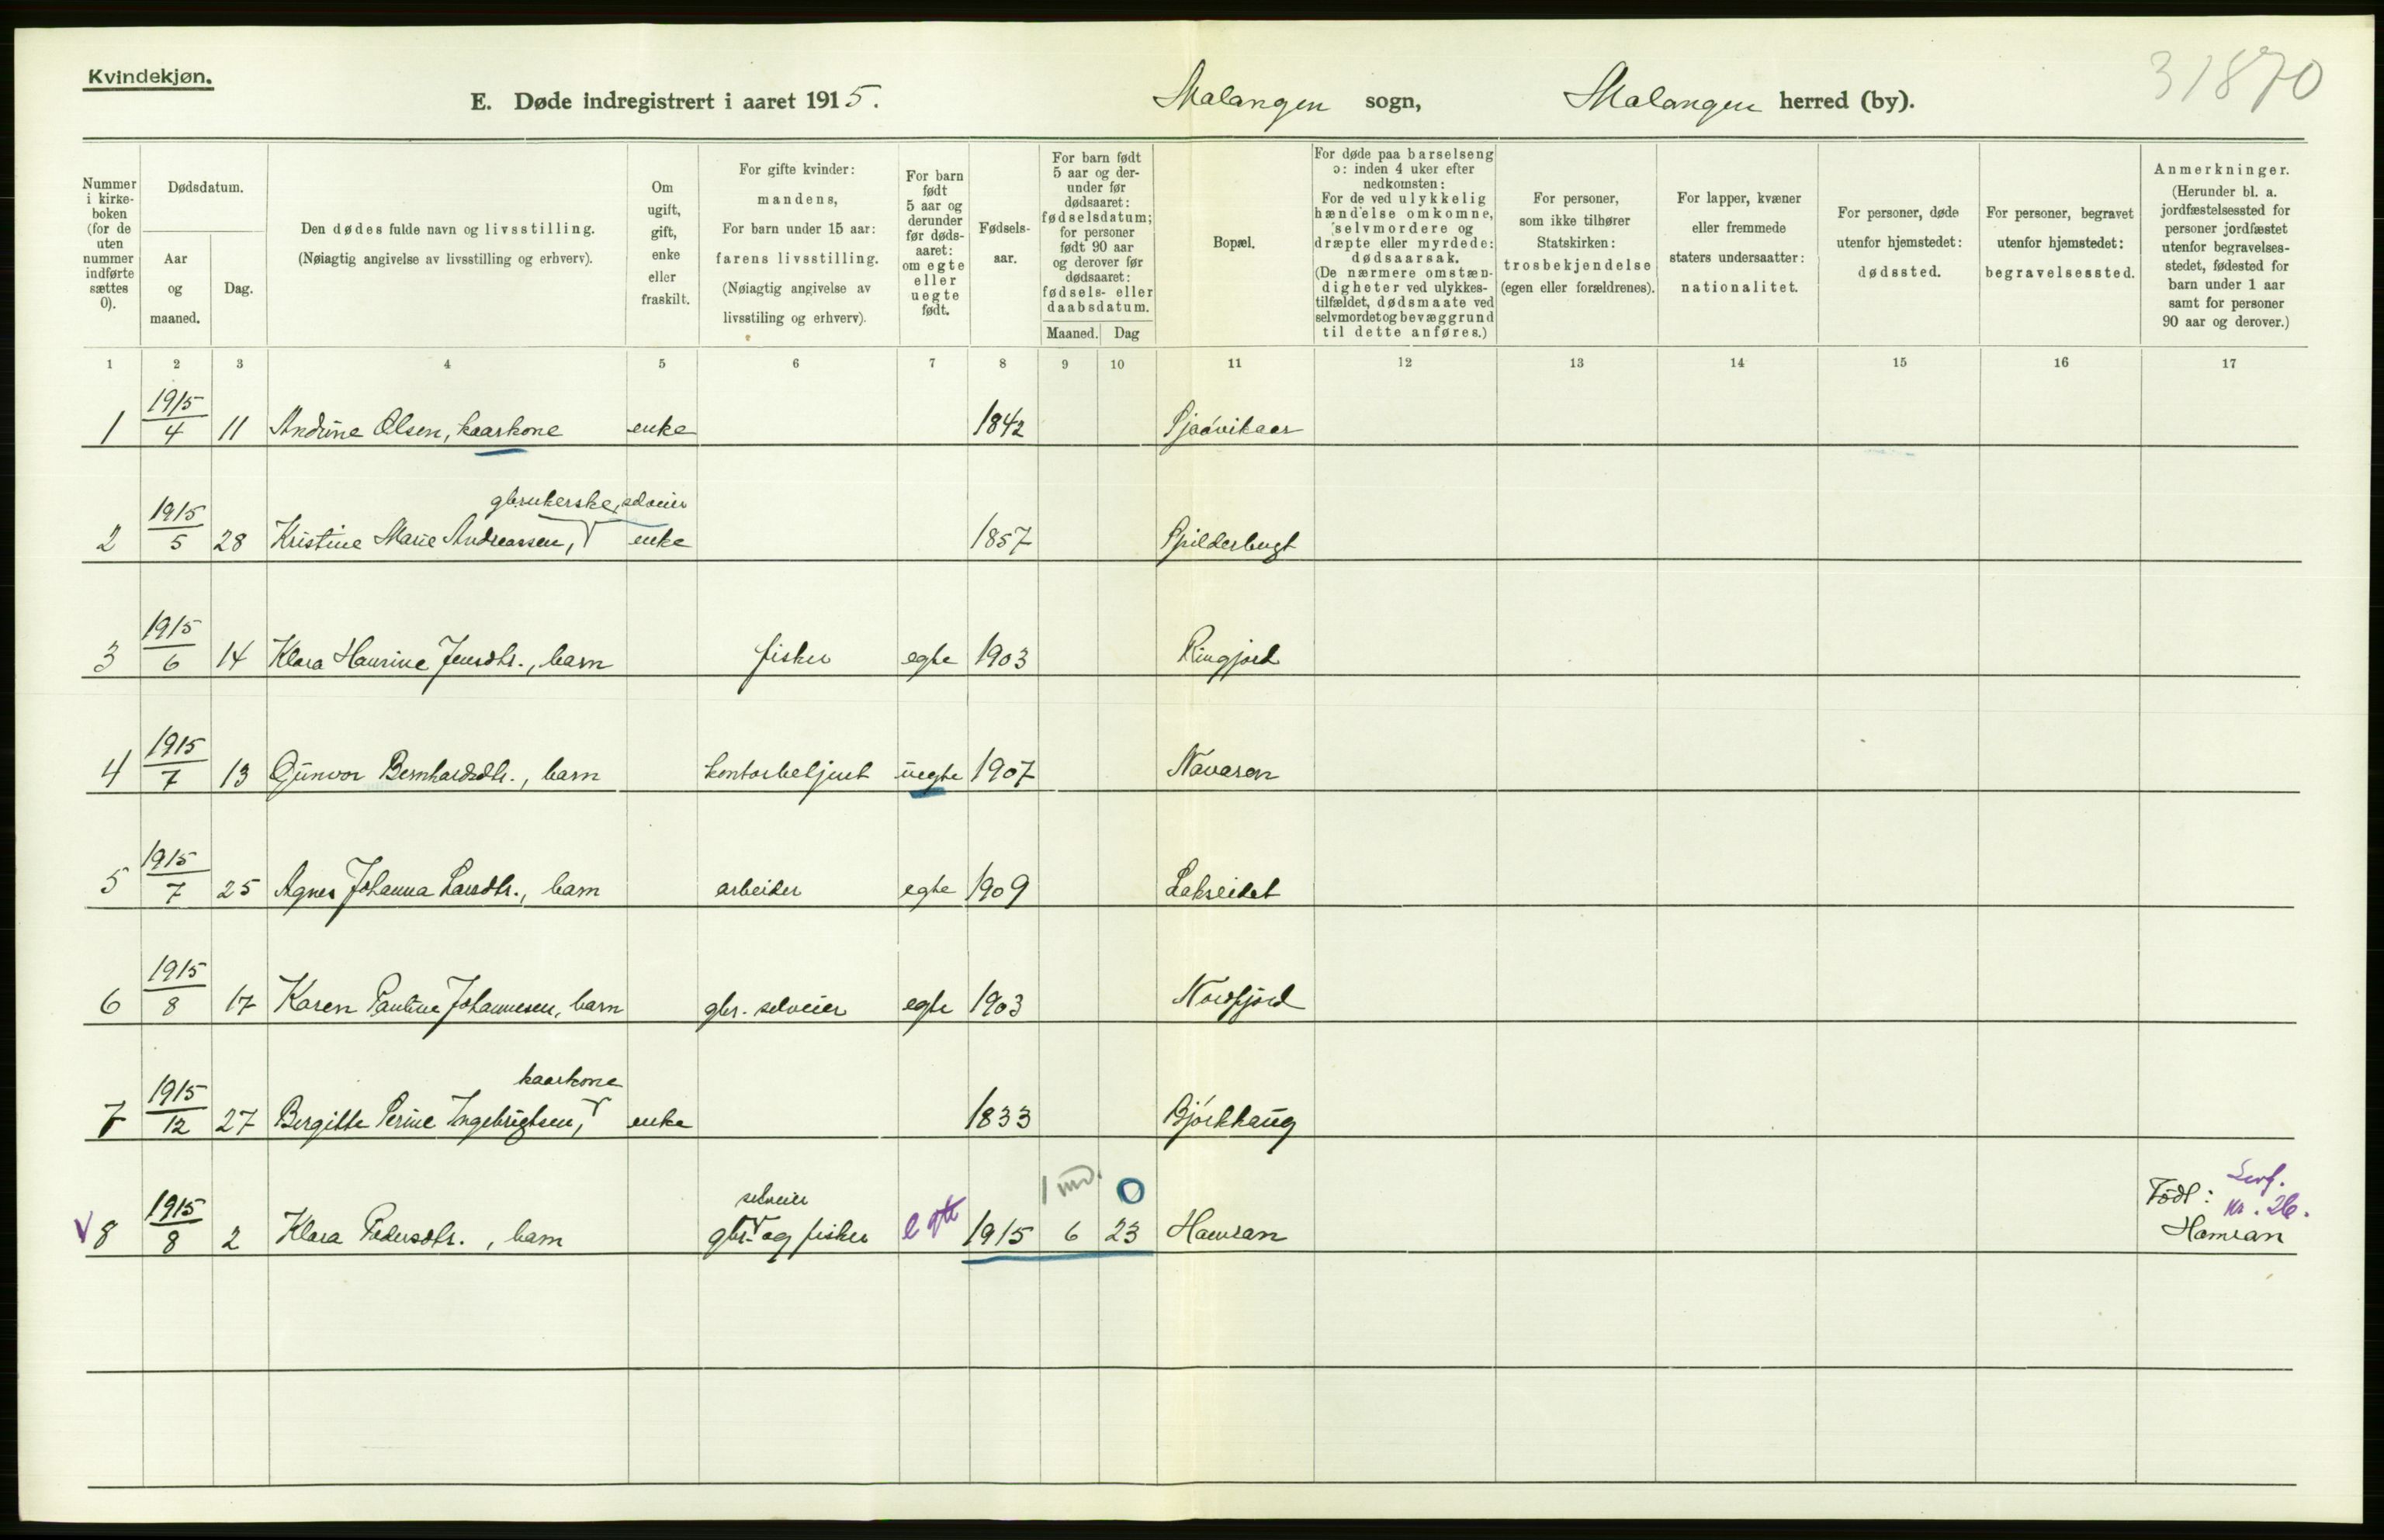 Kvindekjøn.
31870
E. Døde indregistrert i aaret 1915. Malangen sogn, Malangen herred (by).
Nummer i kirke- boken (for de uten nummer indførte sættes 0).
Dødsdatum.
Aar og maaned.
Dag.
Den dødes fulde navn og livsstilling.
(Nøiagtig angivelse av livsstilling og erhverv).
Om ugift, gift, enke eller fraskilt.
For gifte kvinder: mandens, For barn under 15 aar: farens livsstilling. (Nøiagtig angivelse av livsstiling og erhverv).
For barn født 5 aar og derunder før døds- aaret: om egte eller uegte født.
Fødsels- aar.
For barn født 5 aar og der- under før dødsaaret: fødselsdatum; for personer født 90 aar og derover før dødsaaret: fødsels- eller daabsdatum.
Maaned. Dag
Bopæl.
For døde paa barselseng ɔ: inden 4 uker efter nedkomsten: For de ved ulykkelig hændelse omkomne, selvmordere og dræpte eller myrdede: dødsaarsak. (De nærmere omstæn- digheter ved ulykkes- tilfældet, dødsmaate ved selvmordet og bevæggrund til dette anføres.)
For personer, som ikke tilhører Statskirken: trosbekjendelse (egen eller forældrenes).
For lapper, kvæner eller fremmede staters undersaatter: nationalitet.
For personer, døde utenfor hjemstedet: dødssted.
For personer, begravet utenfor hjemstedet: begravelsessted.
Anmerkninger. (Herunder bl. a. jordfæstelsessted for personer jordfæstet utenfor begravelses- stedet, fødested for barn under 1 aar samt for personer 90 aar og derover.)
1 2 3 4 5 6 7 8 9 10 11 12 13 14 15 16 17
1 1915/4 11 Andrine Olsen, kaarkone enke 1842 Sjaavikaor
gbrukerske, selveier
2 1915/5 28 Kristine Marie Andreassen, enke 1857 Spilderbugt
3 1915/6 14 Klara Haurine Jensdtr., barn fisker egte 1903 Ringjord
4 1915/7 13 Gunvor Bernhardsdtr., barn kontorbetjent uegte 1907 Navaren
5 1915/7 25 Agnes Johanna Larsdtr., barn arbeider egte 1909 Lakseidet
6 1915/8 17 Karen Pauline Johannesen, barn gbr. selveier egte 1903 Nordfjord
kaarkone
7 1915/12 27 Bergitte Perine Ingebrigtsen, enke 1833 Bjørkhaug
selveier 1 md. 0 Født: Nr. 26.
8 1915/8 2 Klara Pedersdtr., barn gbr. og fisker egte 1915 6 23 Hamran Hamran